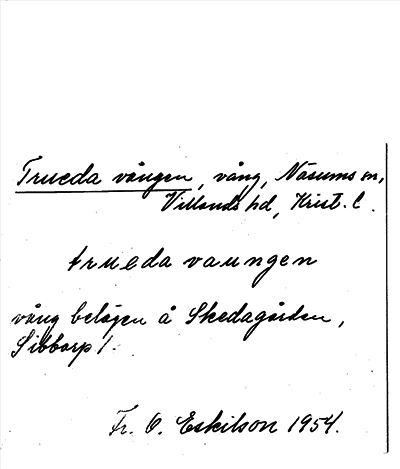 Trueda vången, vång, Näsums sn,
Villands hd, Krist. l.
trueda vaungen
vång belägen å Skedagården,
Sibbarp 1.
Fr. O. Eskilson 1954.